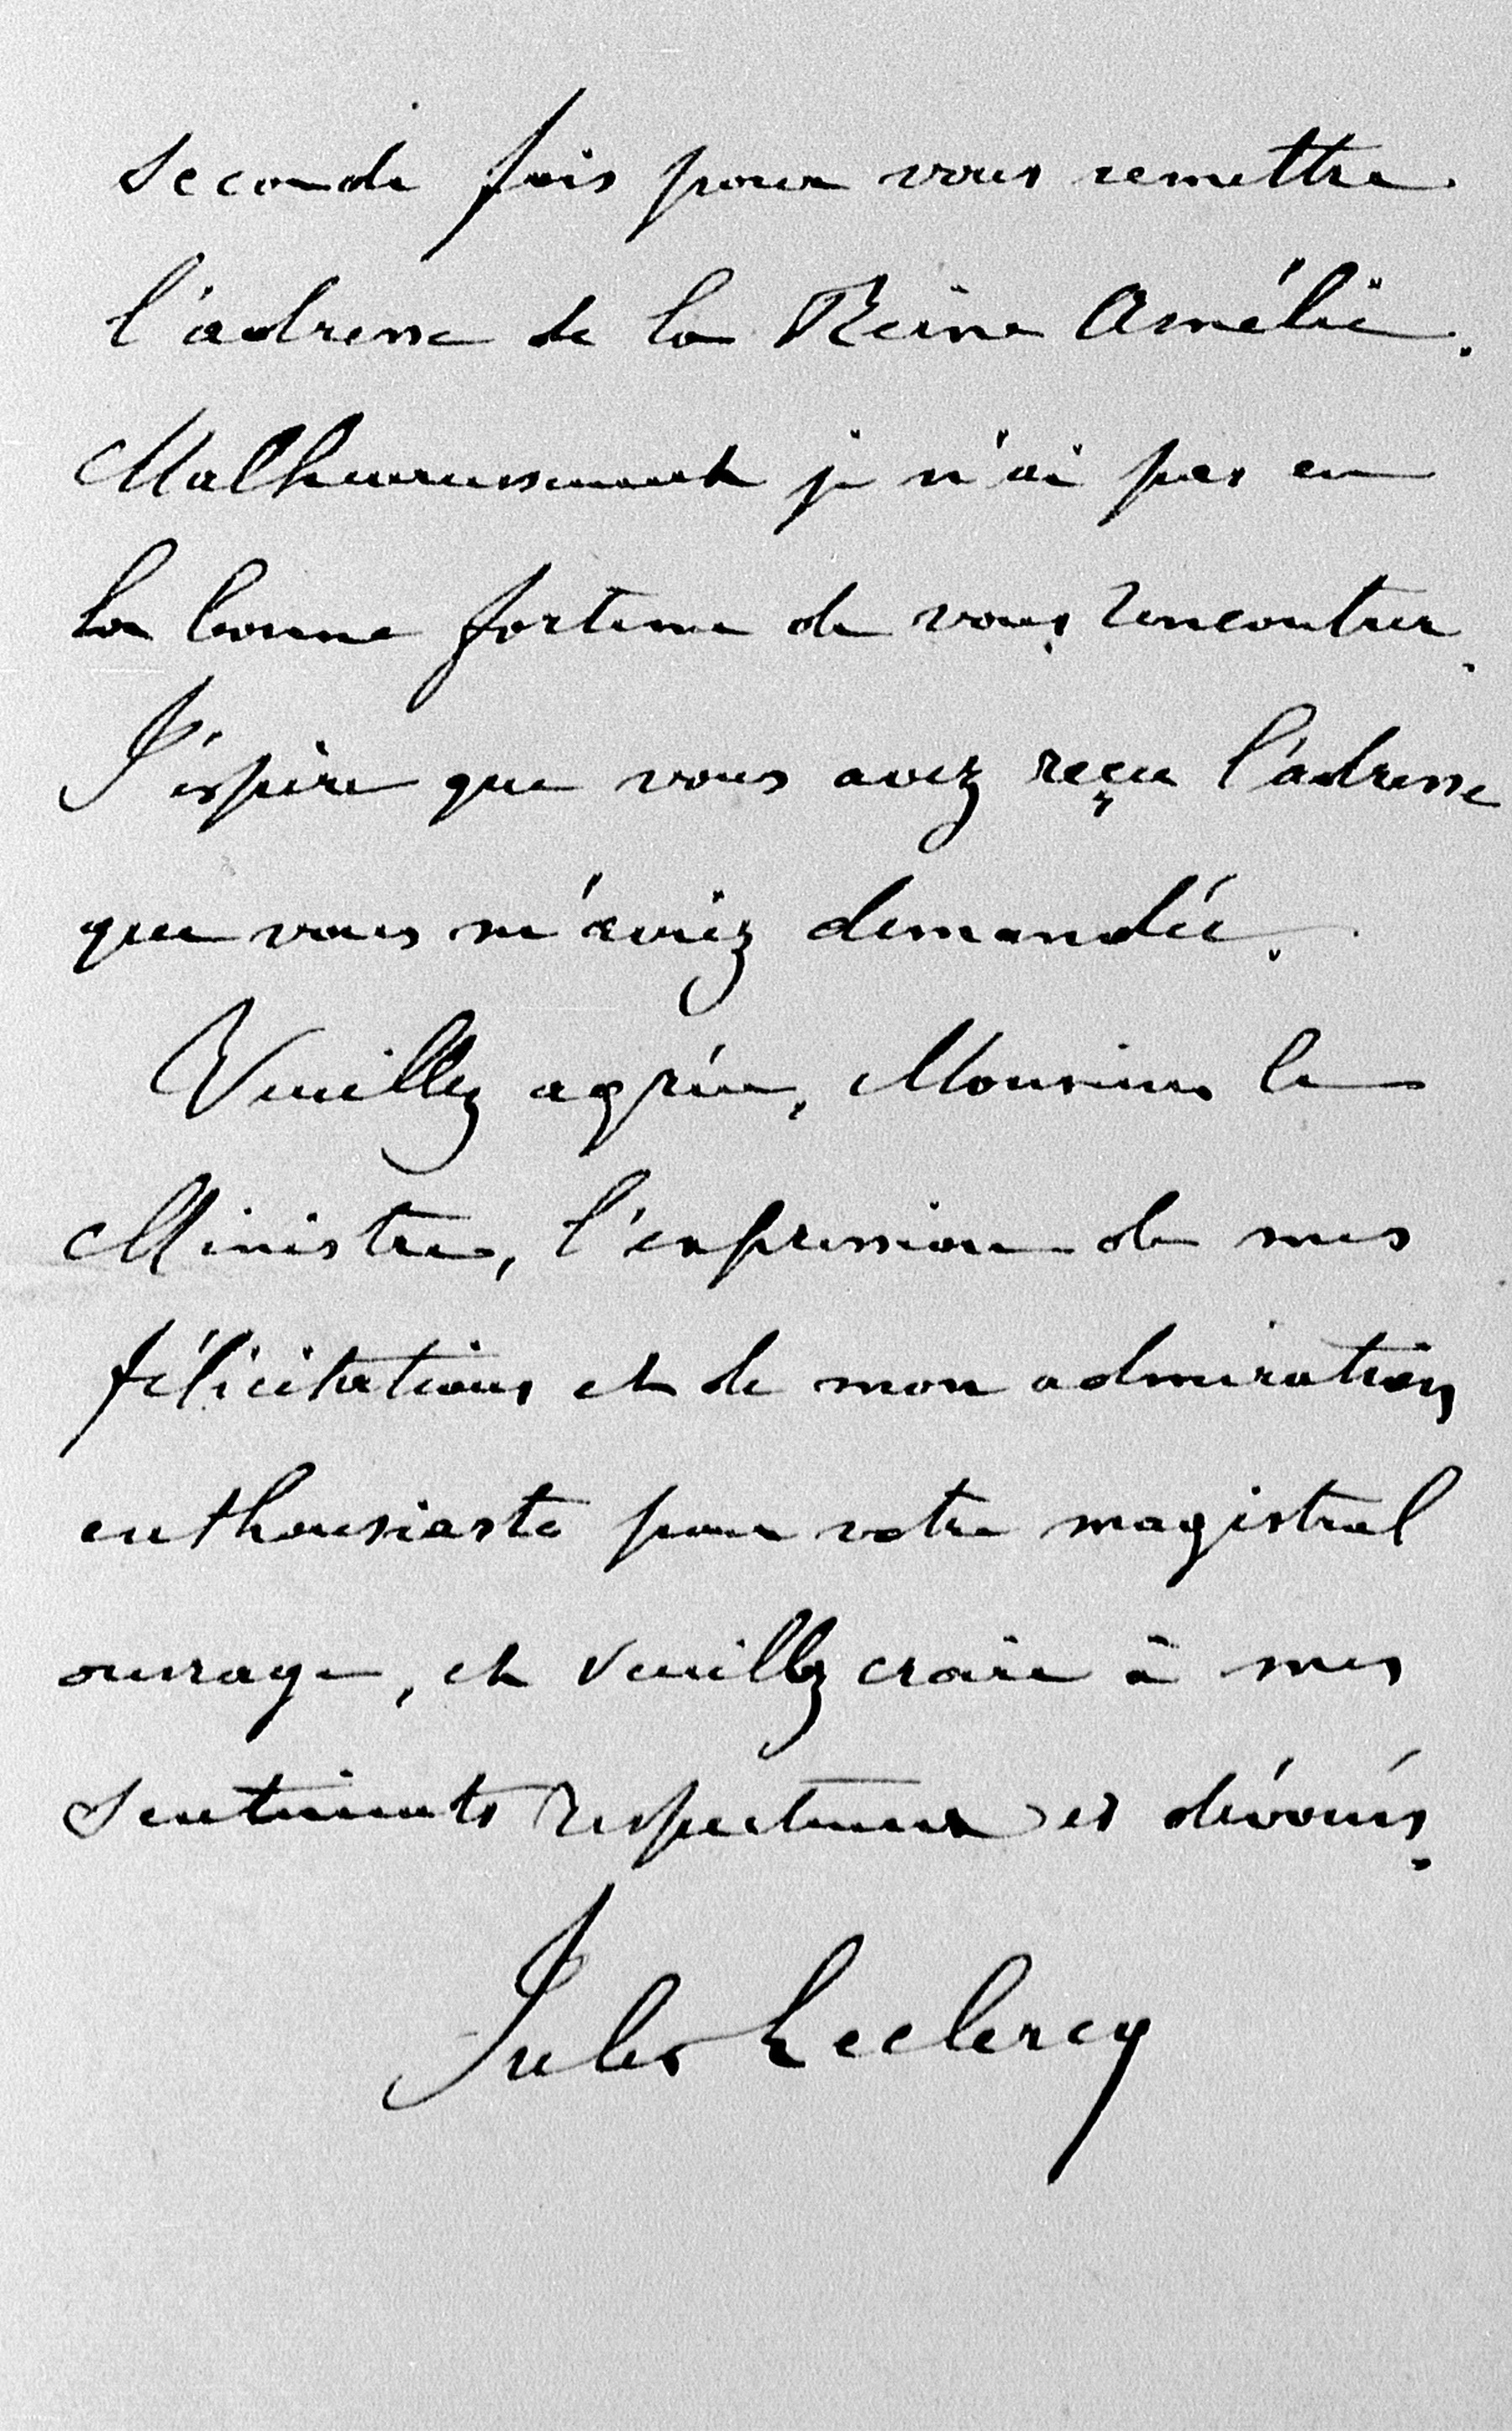 seconde fois pour vous remettre
l'adresse de la Reine Amélie.
Malheureusement je n'ai pas eu
la bonne fortune de vous rencontrer.
J'espère que vous avez reçu l'adresse
que vous m'aviez demandée.
Veuillez agréer, Monsieur le
Ministre, l'expression de mes
félicitations et de mon admiration
enthousiaste pour votre magistral
ouvrage, et veuillez croire à mes
sentiments respectueux et dévoués.
Jules Leclercq